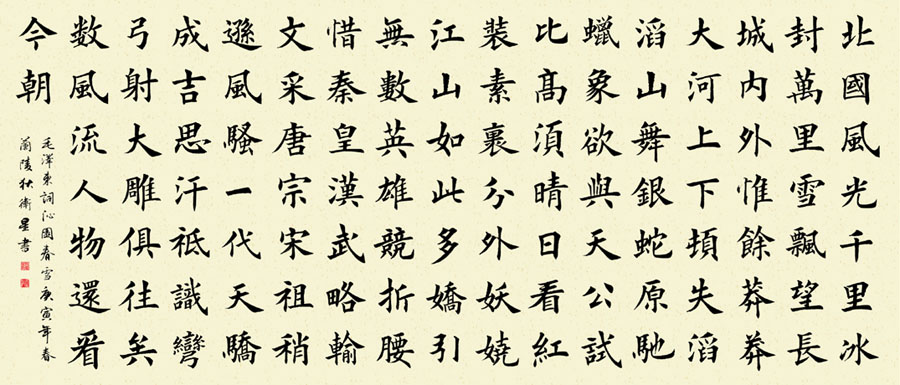 北國風光千里冰
封萬里雪飄望長
城内外惟餘莽莽
大河上下頓失滔
滔山舞銀蛇原馳
蠟象欲與天公試
比髙須晴日看紅
裝素裹分外妖嬈
江山如此多嬌引
無數英雄競折腰
惜秦皇漢武略輸
文采唐宗宋祖稍
遜風騷一代天驕
成吉思汗祗識彎
弓射大雕俱往矣
数風流人物還看
今朝
毛澤東詞沁園春雪庚寅年春
蘭陵狄衛星書